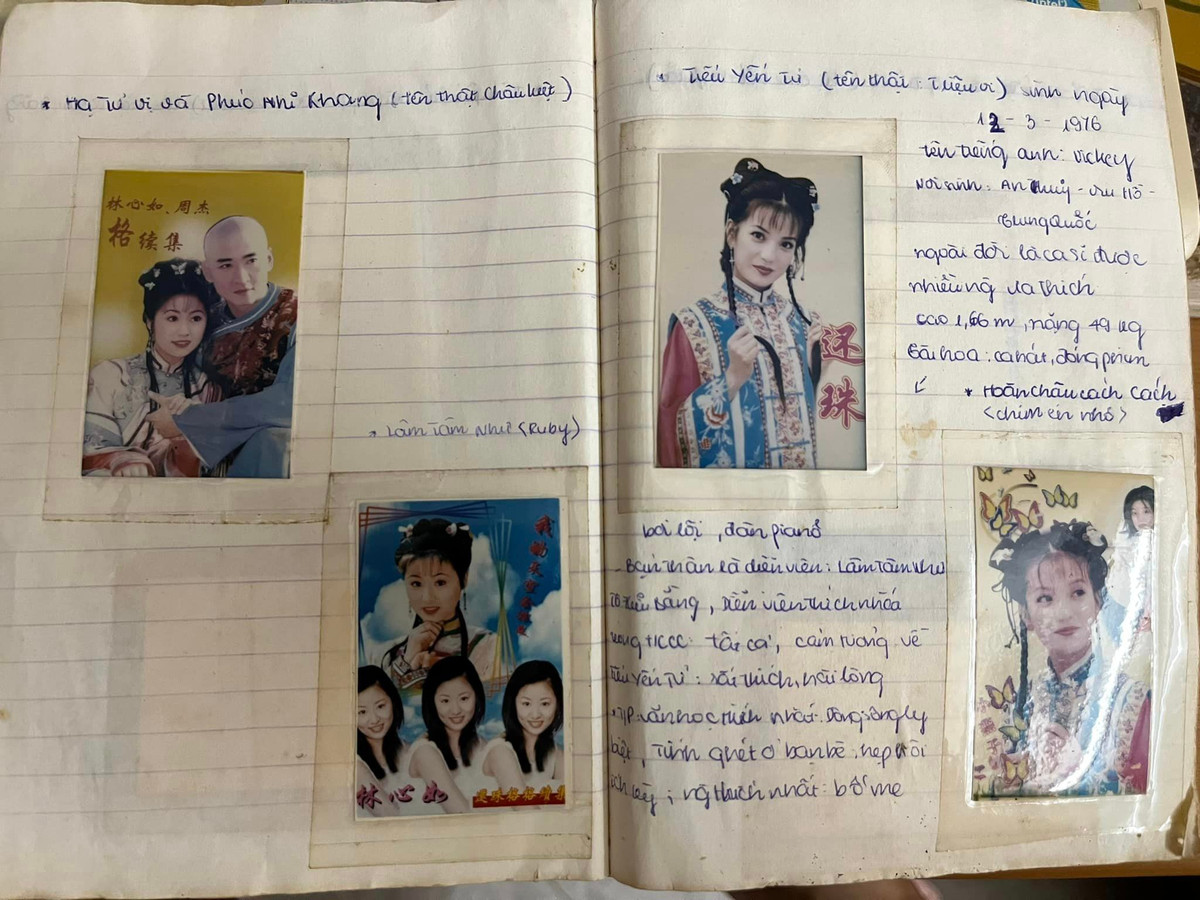 * Hạ Tử Vi và Phúc Nhĩ Khang (tên thật Châu Kiệt)
林心如、周杰
格 续集
* Lâm Tâm Như (Ruby)
林心如
* Tiểu Yến Tử (tên thật: Triệu Vi) sinh ngày
12 - 3 - 1976
tên tiếng anh: vickey
Nơi sinh: An Huy - Vu Hồ -
Trung Quốc
ngoài đời là ca sĩ được
nhiều ng ưa thích
cao 1,66 m, nặng 49 kg
tài hoa: ca hát, đóng phim
* Hoàn châu cách cách
<chim én nhỏ>
还
珠
bơi lội, đàn pianô
- Bạn thân là diễn viên: Lâm Tâm Như
, diễn viên thích nhất
trong HCCC: tất cả, cảm tưởng về
tiểu yến tử: rất thích, hài lòng
* TP văn học thích nhất: Dòng sông ly
biệt, Tính ghét ở bạn bè: hẹp hòi
ích kỷ; ng thích nhất: bố mẹ